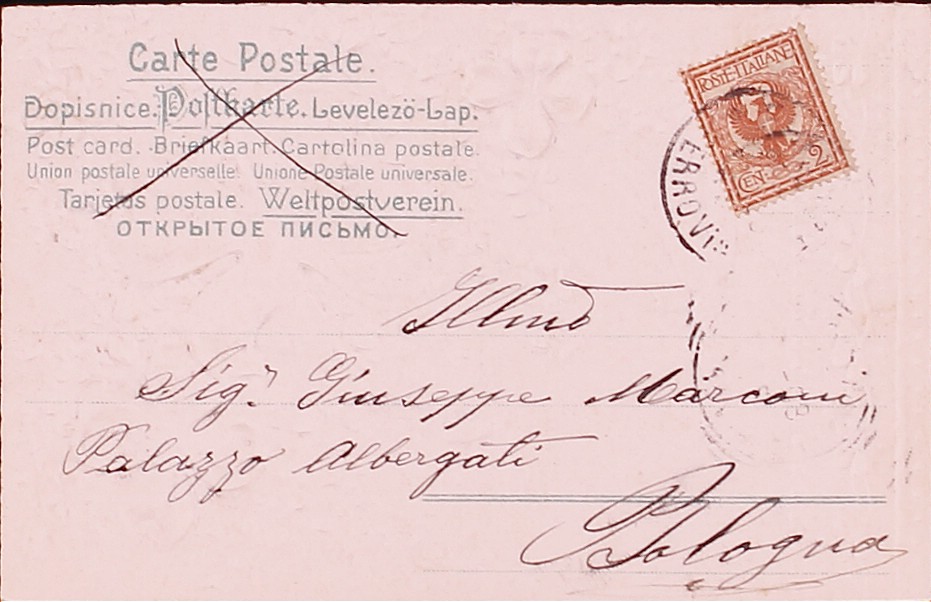 Carte Postale.
Dopisnice. Postkarte. Levelezö-Lap.
Post card. Briefkaart. Cartolina postale.
Union postale universelle. Unione Postale universale.
Tarjetas postale. Weltpostverein.
ОТКРЫТОЕ ПИСЬМО.
POSTE·ITALIANE
CEN. 2
FERROVIA
Illmo
Sigr. Giuseppe Marconi
Palazzo Albergati
Bologna